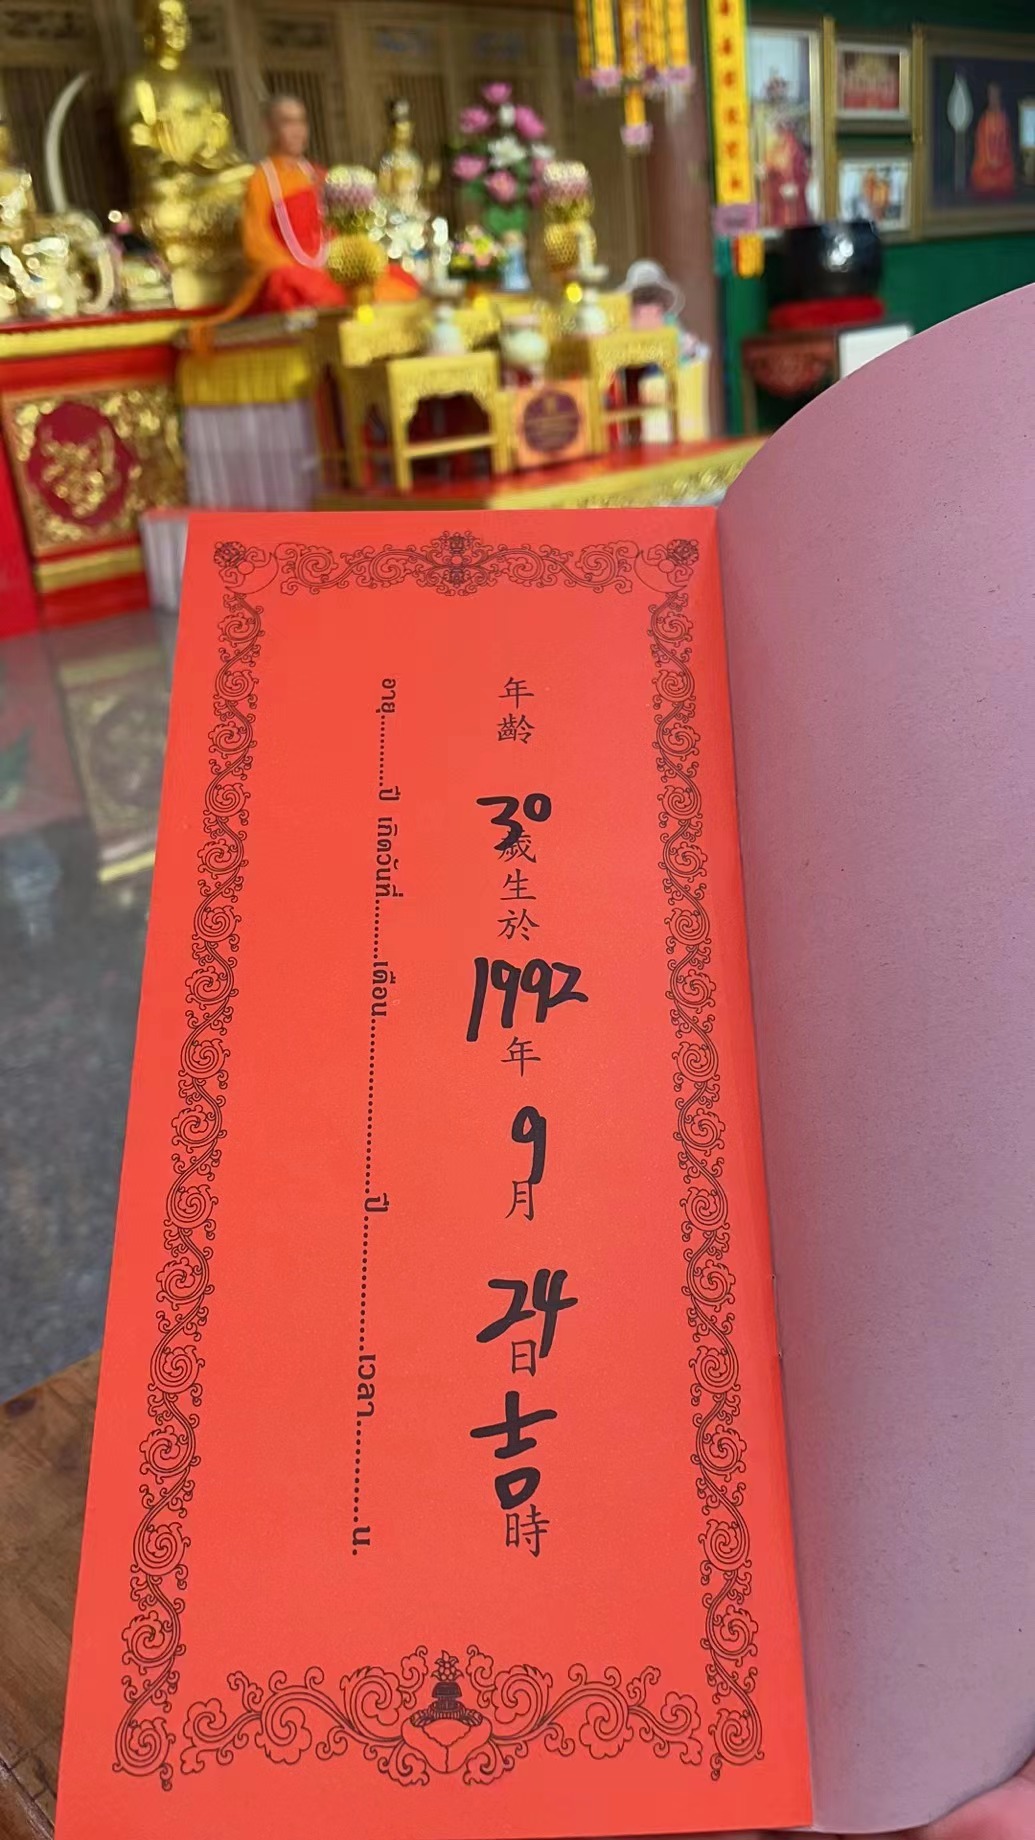 年齡 30 歲生於 1992 年 9 月 24 日 吉 時
อายุ............ปี เกิดวันที่..........เดือน............................ปี......................เวลา..............น.